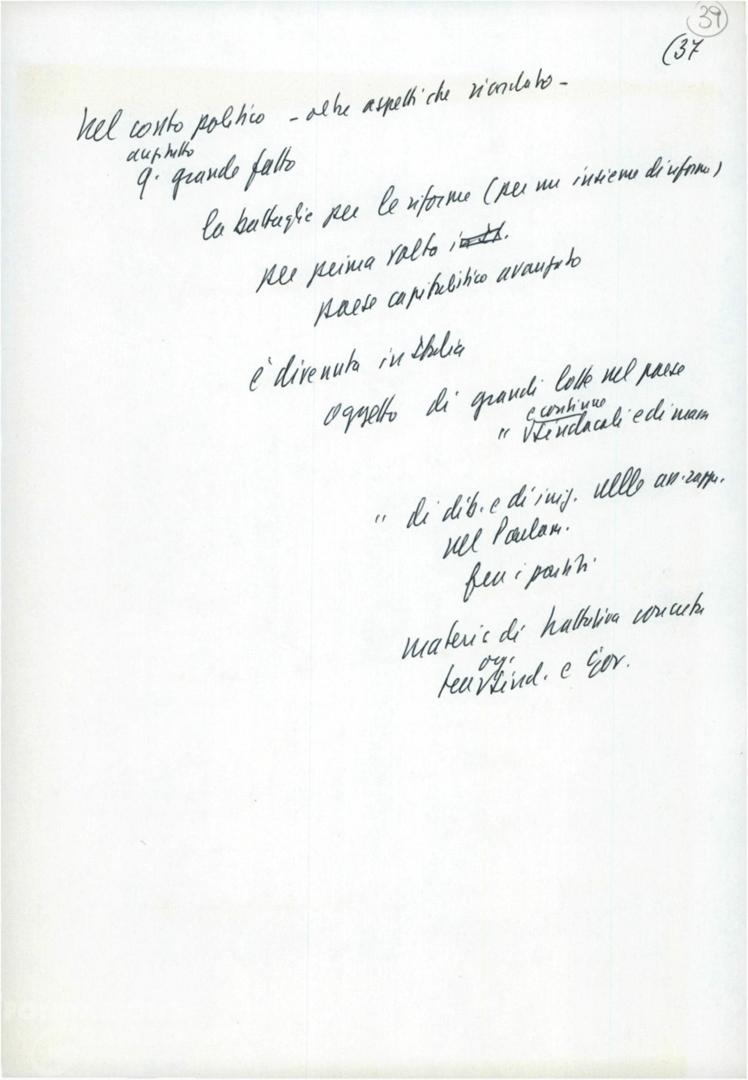 39
(37
Nel contto politico - oltre aspetti che ricordato -
anzitutto
q. grande fatto
la battaglia per le riforme (per un insieme di riforme)
per prima volta in
paese capitalistico avanzato
è divenuta in Italia
oggetto di grandi lotte nel paese
e continue
" sindacali e di massa
" di dib. e di iniz. nelle ass. rapp.
nel Parlam.
fra i partiti
materia di trattativa concreta
org.
tra sind. e Gov.